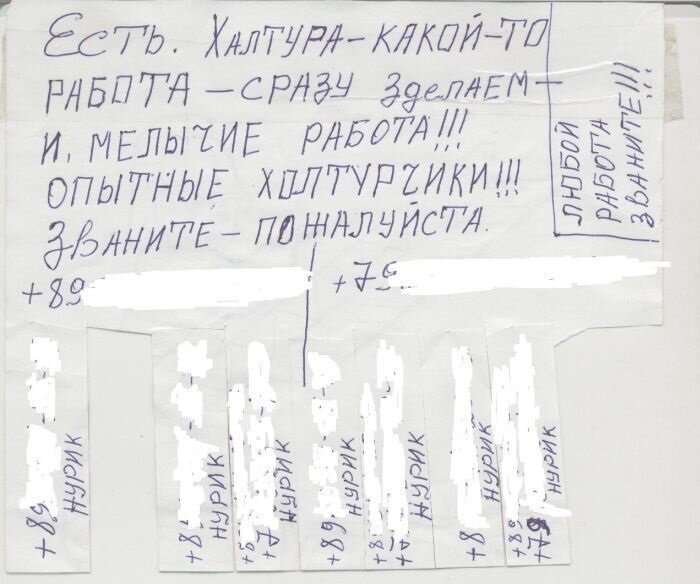 Есть. Халтура-какой-то
работа - сразу зделаем -
и, мелычие работа!!!
опытные холтурчики!!!
званите - пожалуйста.
любой
работа
званите!!!
+89
+79
+89
Нурик
+8
Нурик
Нурик
+89
Нурик
Нурик
+8
Нурик
+89
+79
Нурик